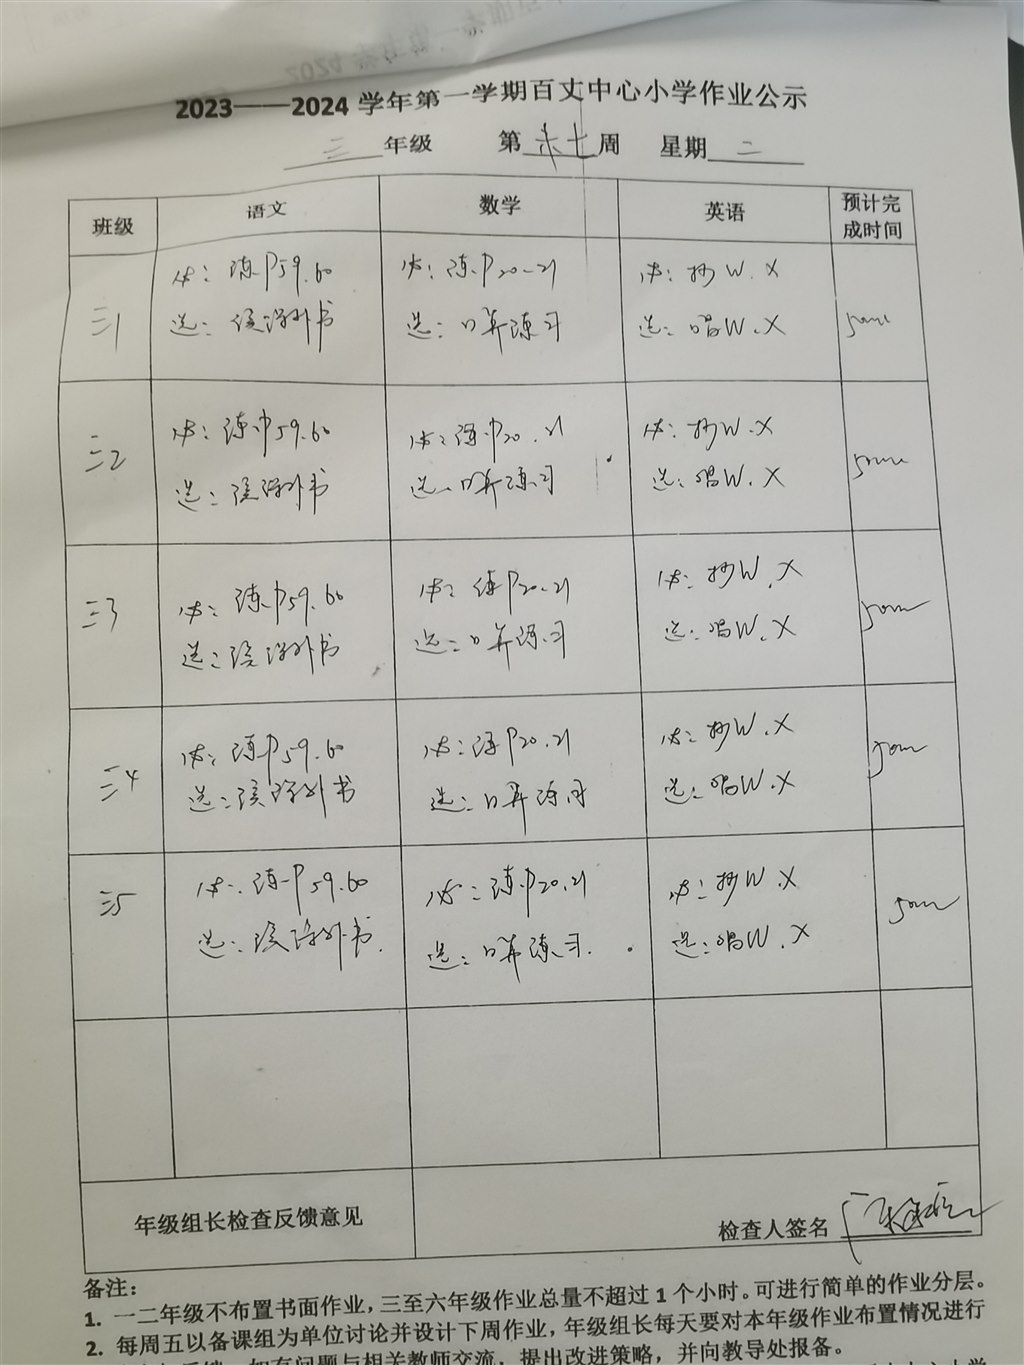 2023——2024 学年第一学期百丈中心小学作业公示
三 年级 第 周 星期 二
班级 语文 数学 英语 预计完成时间
三1
必：练P59.60
选：读课外书
必：练P20-21
选：口算练习
必：抄W.X
选：唱W.X
三2
必：练P59.60
选：读课外书
必：练P20.21
选：口算练习
必：抄W.X
选：唱W.X
三3
必：练P59.60
选：读课外书
必：练P20.21
选：口算练习
必：抄W.X
选：唱W.X
三4
必：练P59.60
选：读课外书
必：练P20.21
选：口算练习
必：抄W.X
选：唱W.X
三5
必：练P59.60
选：读课外书.
必：练P20.21
选：口算练习.
必：抄W.X
选：唱W.X
年级组长检查反馈意见
检查人签名
备注：
1. 一二年级不布置书面作业，三至六年级作业总量不超过 1 个小时。可进行简单的作业分层。
2. 每周五以备课组为单位讨论并设计下周作业，年级组长每天要对本年级作业布置情况进行
如有问题与相关教师交流，提出改进策略，并向教导处报备。